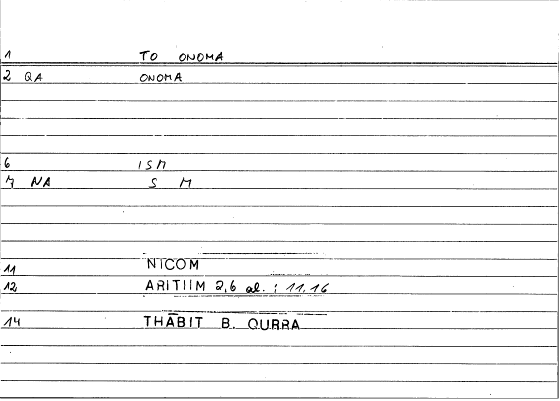 1 TO ONOMA
2 QA ONOMA
6 ISM
7 NA S M
11 NICOM
12 ARITIIM 2,6 al. ; 11,16
14 THĀBIT B. QURRA